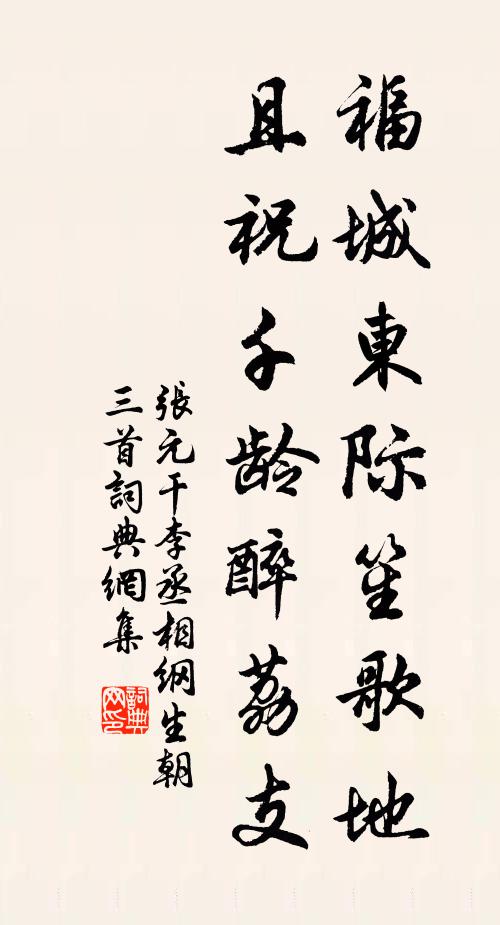 福城東际笙歌地
且祝千龄醉荔支
張元干李丞相纲生朝
三首詞典網集
詞典网印